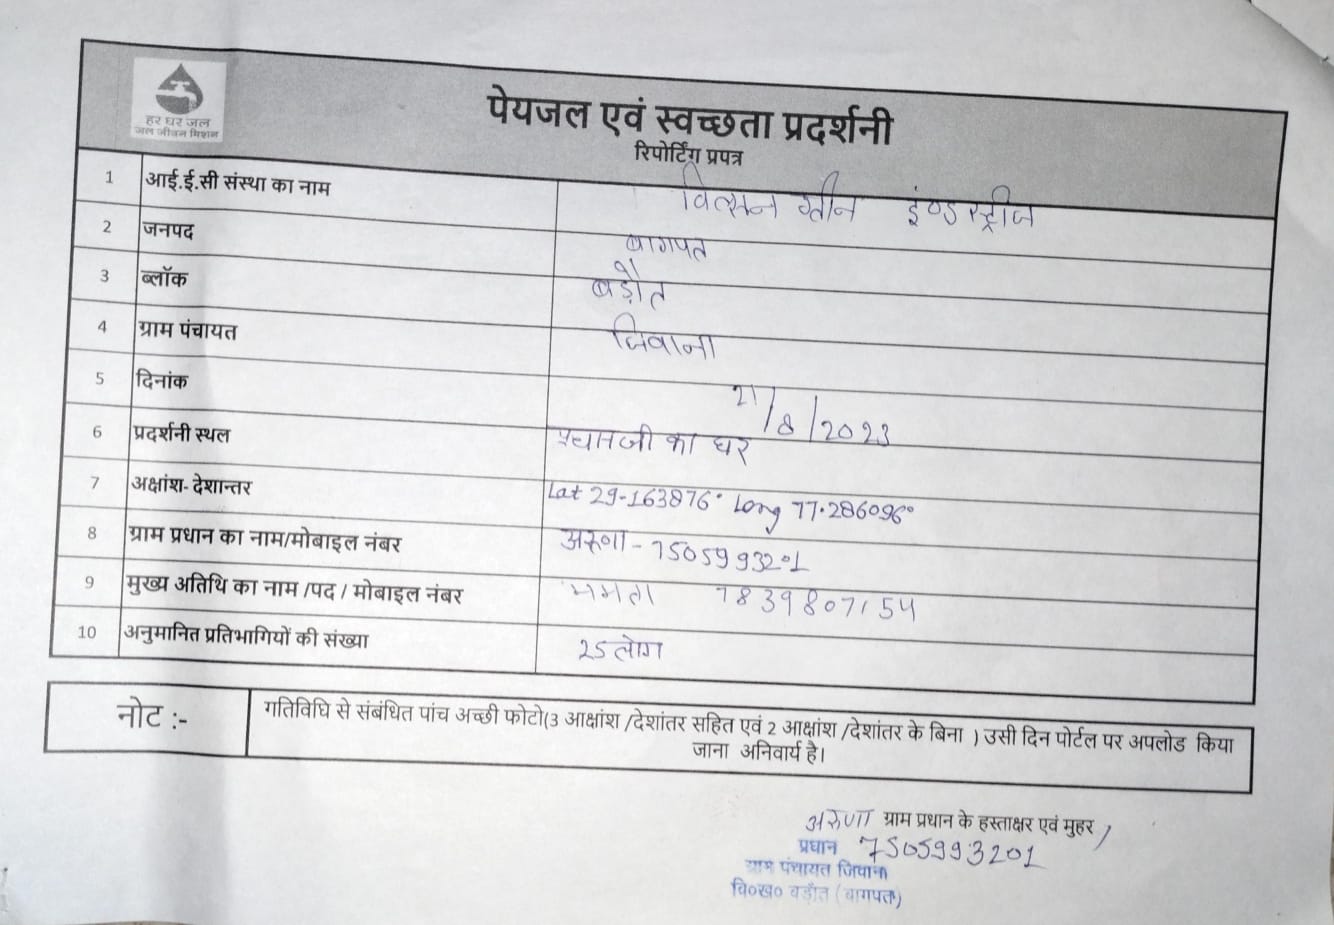 हर घर जल
जल जीवन मिशन
पेयजल एवं स्वच्छता प्रदर्शनी
रिपोर्टिंग प्रपत्र
1 आई.ई.सी संस्था का नाम वित्सन ग्रीन इंण्डस्ट्रीज
2 जनपद बागपत
3 ब्लॉक बड़ौत
4 ग्राम पंचायत जिवाना
5 दिनांक 21/8/2023
6 प्रदर्शनी स्थल प्रधानजी का घर
7 अक्षांश- देशान्तर Lat 29.163876° Long 77.286096°
8 ग्राम प्रधान का नाम/मोबाइल नंबर अरूणा - 7505993201
9 मुख्य अतिथि का नाम /पद / मोबाइल नंबर ममता 7839807154
10 अनुमानित प्रतिभागियों की संख्या 25 लोग
नोट :- गतिविधि से संबंधित पांच अच्छी फोटो(3 आक्षांश /देशांतर सहित एवं 2 आक्षांश /देशांतर के बिना ) उसी दिन पोर्टल पर अपलोड किया
जाना अनिवार्य है।
अरुणा ग्राम प्रधान के हस्ताक्षर एवं मुहर
प्रधान 7505993201
ग्राम पंचायत जिवाना
वि०ख० बड़ौत (बागपत)